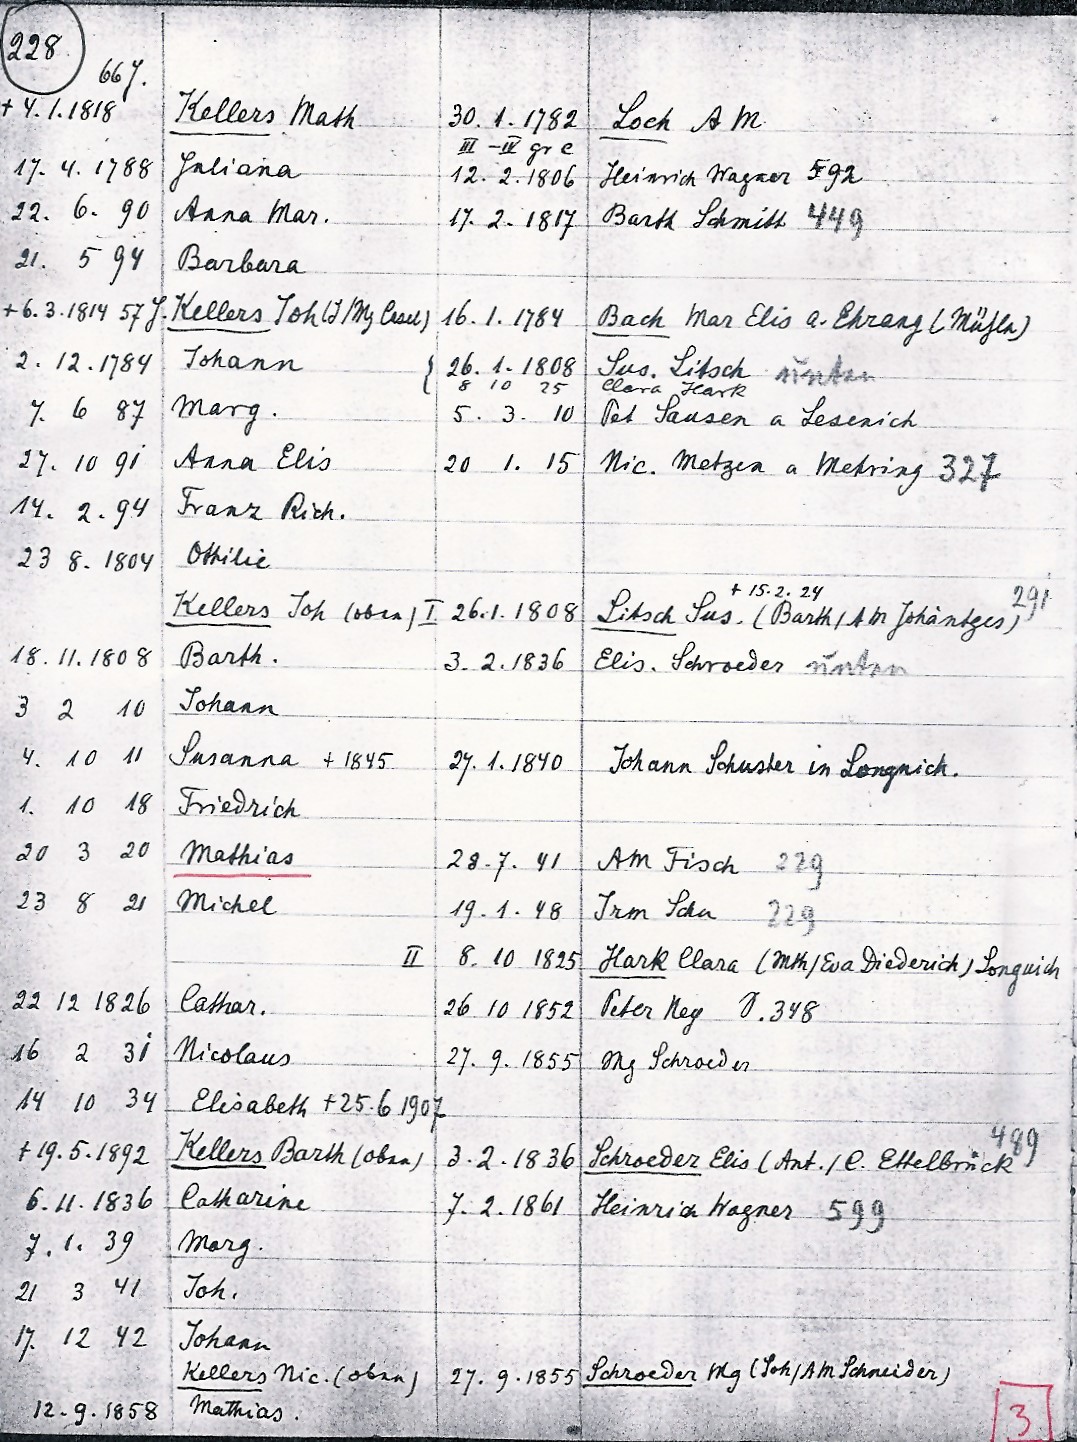 228
66 J.
+ 4.1.1818 Kellers Math 30. 1. 1782 Loch A M
III - IV gr c
17. 4. 1788 Juliana 12. 2. 1806 Heinrich Wagner 592
22. 6. 90 Anna Mar. 17. 2. 1817 Barth Schmitt 449
21. 5 94 Barbara
+6.3.1814 57 J. Kellers Joh (J/Mg) 16. 1. 1784 Bach Mar Elis a. Ehrang (Müfln)
2. 12. 1784 Johann { 26. 1. 1808 Sus. Litsch unten
8 10 25 Clara Hark
7. 6 87 Marg. 5. 3. 10 Pet Sausen a Lesenich
27. 10 91 Anna Elis 20 1. 15 Nic. Metzen a Mehring 327
14. 2. 94 Franz Rich.
23 8. 1804 Ottilie
+ 15.2. 24 291
Kellers Joh (oben) I 26.1. 1808 Litsch Sus. (Barth/AM Johäntges)
18. 11. 1808 Barth. 3. 2. 1836 Elis. Schroeder unten
3 2 10 Johann
4. 10 11 Susanna + 1845 27. 1. 1840 Johann Schuster in Longuich.
1. 10 18 Friedrich
20 3 20 Mathias 28. 7. 41 AM Fisch 229
23 8 21 Michel 19. 1. 48 Irm Schu 229
II 8. 10 1825 Hark Clara (Mth/Eva Diederich) Longuich
22 12 1826 Cathar. 26 10 1852 Peter Ney 348
16 2 31 Nicolaus 27. 9. 1855 Mg Schroeder
14 10 34 Elisabeth +25.6 1907
489
+ 19.5.1892 Kellers Barth (oben) 3. 2. 1836 Schroeder Elis (Ant./C. Ettelbrück
6. 11. 1836 Catharine 7. 2. 1861 Heinrich Wagner 599
7. 1. 39 Marg.
21 3 41 Joh.
17. 12 42 Johann
Kellers Nic. (oben) 27. 9. 1855 Schroeder Mg (Joh/AM Schneider)
12. 9. 1858 Mathias.
3